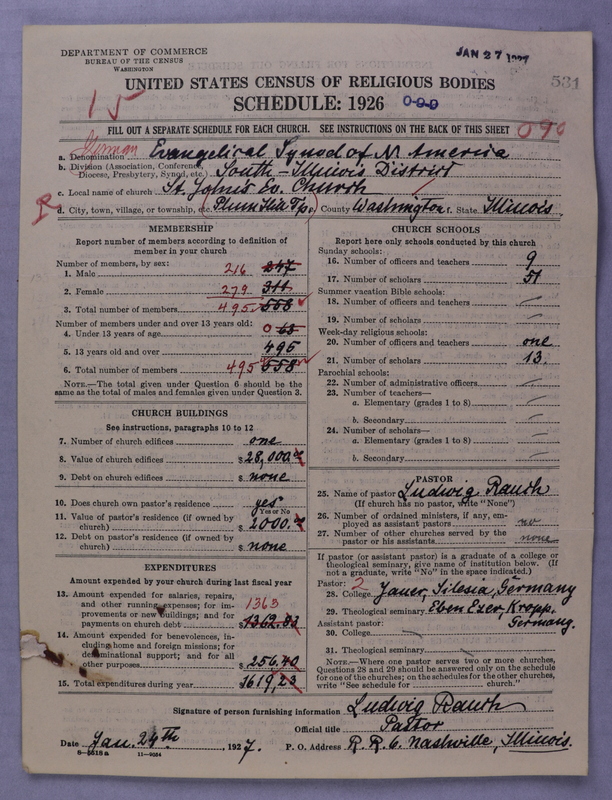 DEPARTMENT OF COMMERCE
BUREAU OF THE CENSUS
WASHINGTON
JAN 27 1927
UNITED STATES CENSUS OF RELIGIOUS BODIES
531
15
SCHEDULE: 1926 0-9-9
FILL OUT A SEPARATE SCHEDULE FOR EACH CHURCH. SEE INSTRUCTIONS ON THE BACK OF THIS SHEET
090
German
a. Denomination Evangelical Synod of N. America
b. Division (Association, Conference, Diocese, Presbytery, Synod, etc.) South-Illinois District
c. Local name of church St. Johns Ev. Church
R
d. City, town, village, or township, etc. (Plum Hill Tp.) County Washington f. State Illinois.
MEMBERSHIP
Report number of members according to definition of
member in your church
Number of members, by sex:
1. Male 216 247
2. Female 279 311
3. Total number of members 495 558
Number of members under and over 13 years old:
4. Under 13 years of age 0 63
5. 13 years old and over 495
6. Total number of members 495 558
NOTE.—The total given under Question 6 should be the
same as the total of males and females given under Question 3.
CHURCH BUILDINGS
See instructions, paragraphs 10 to 12
7. Number of church edifices one
8. Value of church edifices $ 28,000.00
9. Debt on church edifices $ none
10. Does church own pastor's residence yes
(Yes or No)
11. Value of pastor's residence (if owned by
church) $ 2000.00
12. Debt on pastor's residence (if owned by
church) $ none
EXPENDITURES
Amount expended by your church during last fiscal year
13. Amount expended for salaries, repairs,
and other running expenses; for im-
provements or new buildings; and for
payments on church debt $ 1363 1362.83
14. Amount expended for benevolences, in-
cluding home and foreign missions; for
denominational support; and for all
other purposes $ 256.40
15. Total expenditures during year $ 1619,23
CHURCH SCHOOLS
Report here only schools conducted by this church
Sunday schools:
16. Number of officers and teachers 9
17. Number of scholars 51
Summer vacation Bible schools:
18. Number of officers and teachers
19. Number of scholars
Week-day religious schools:
20. Number of officers and teachers one
21. Number of scholars 13.
Parochial schools:
22. Number of administrative officers
23. Number of teachers—
a. Elementary (grades 1 to 8)
b. Secondary
24. Number of scholars—
a. Elementary (grades 1 to 8)
b. Secondary
PASTOR
25. Name of pastor Ludwig Rauth
(If church has no pastor, write "None")
26. Number of ordained ministers, if any, em-
ployed as assistant pastors no
27. Number of other churches served by the
pastor or his assistants none
If pastor (or assistant pastor) is a graduate of a college or
theological seminary, give name of institution below. (If
not a graduate, write "No" in the space indicated.)
Pastor: 2
28. College Jauer, Silesia, Germany
29. Theological seminary Eben Ezer, Kropp.
Assistant pastor: Germany.
30. College
31. Theological seminary
NOTE.—Where one pastor serves two or more churches,
Questions 28 and 29 should be answered only on the schedule
for one of the churches; on the schedules for the other churches,
write "See schedule for church."
Signature of person furnishing information Ludwig Rauth
Official title Pastor
Date Jan. 24th, 1927. P. O. Address R. R. 6. Nashville, Illinois.
8—5618 a 11—9084